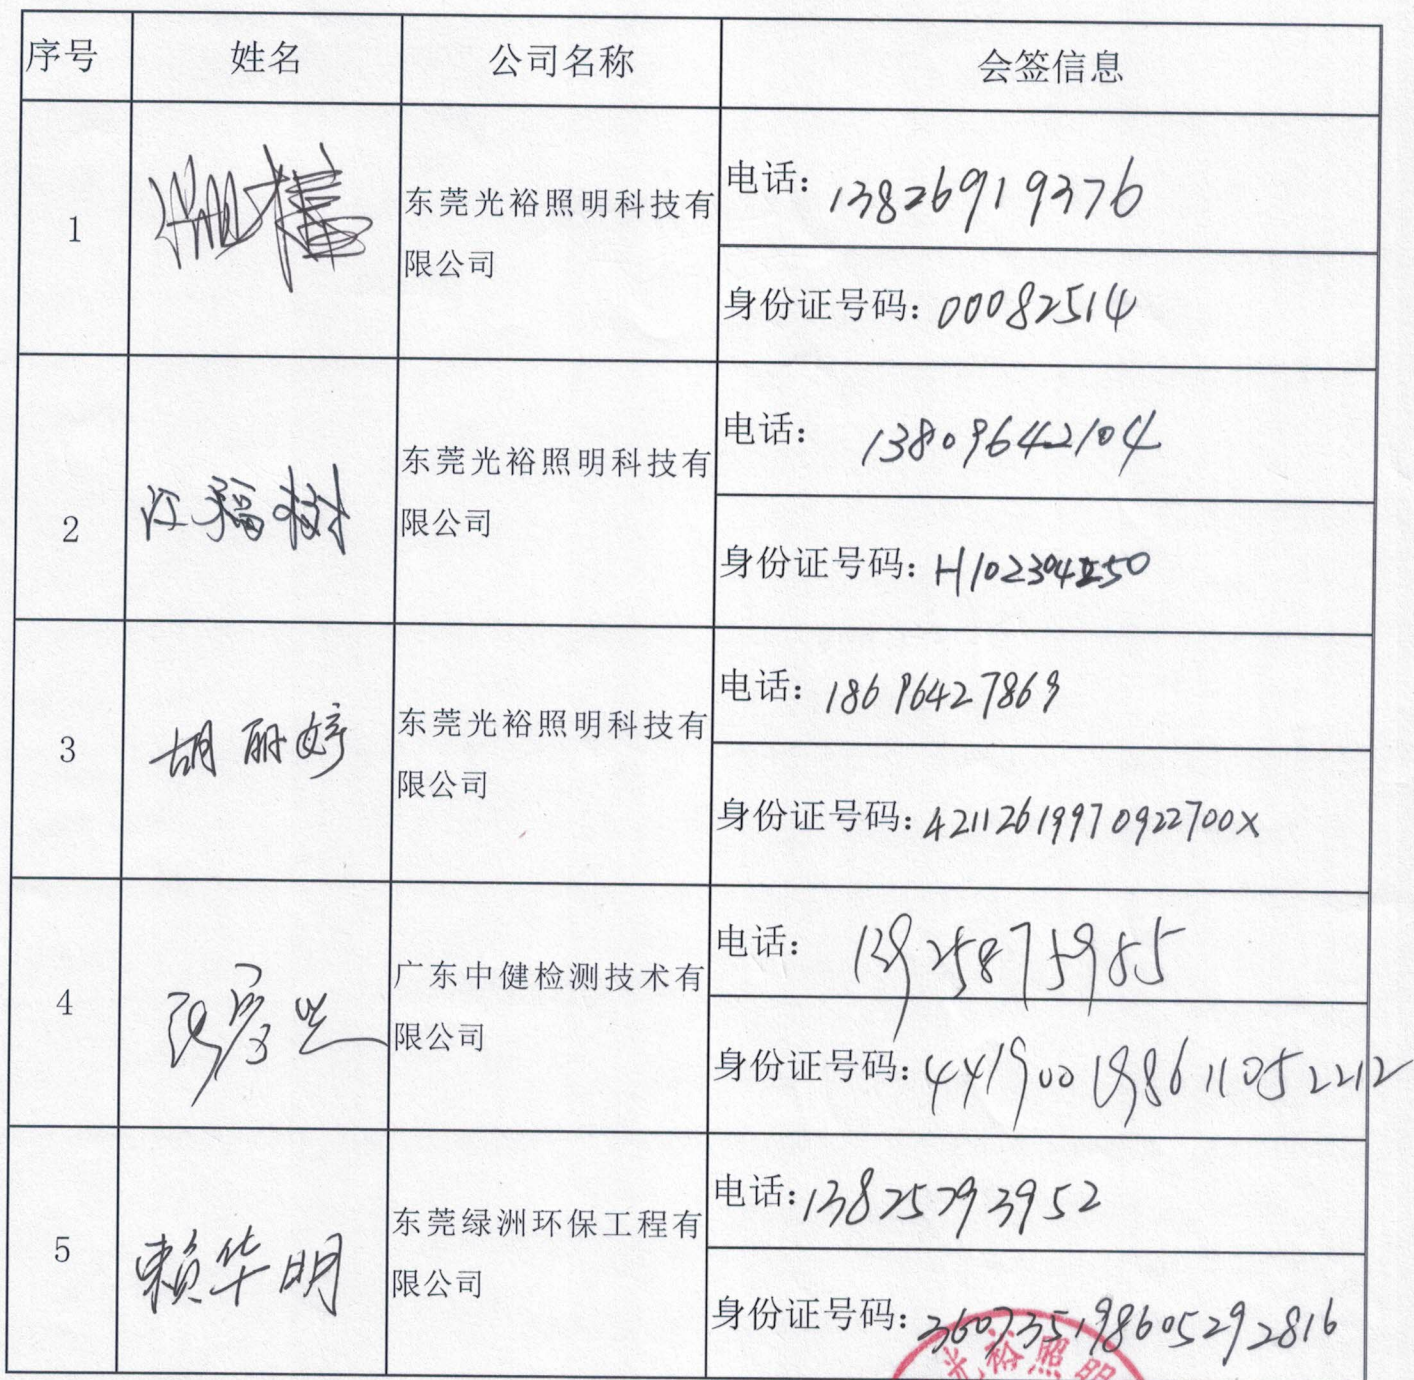 序号 姓名 公司名称 会签信息
1 东莞光裕照明科技有
限公司
电话: 13826919376
身份证号码: 00082514
2 江福树 东莞光裕照明科技有
限公司
电话: 13809642104
身份证号码: H102304250
3 胡丽婷 东莞光裕照明科技有
限公司
电话: 18696427869
身份证号码: 42112619970922700X
4 广东中健检测技术有
限公司
电话: 13925875985
身份证号码: 441900198611052212
5 赖华明 东莞绿洲环保工程有
限公司
电话: 13825793952
身份证号码: 360735198605292816
光裕照明